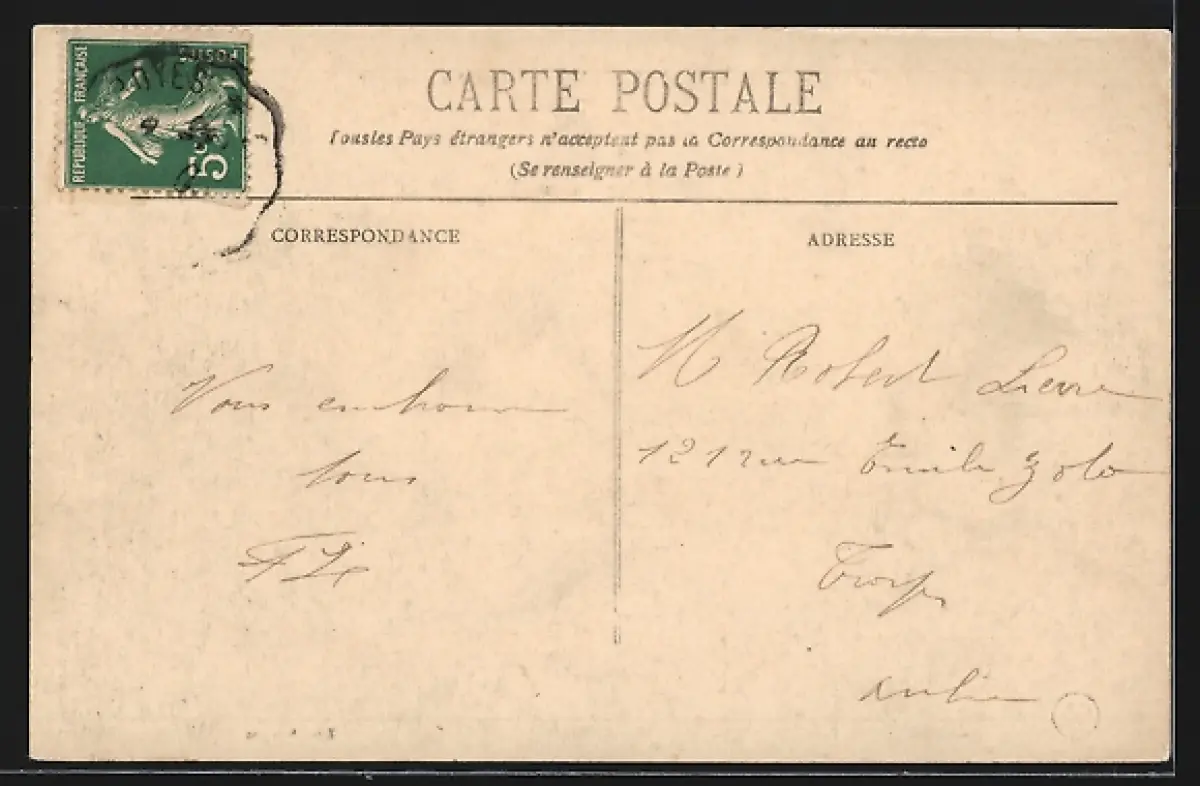 RÉPUBLIQUE FRANÇAISE
POSTES
5c
OYES
CARTE POSTALE
Tous les Pays étrangers n'acceptent pas la Correspondance au recto
(Se renseigner à la Poste)
CORRESPONDANCE
ADRESSE
Vous embrasse
tous
M Robert Lievre
121 rue Emile Zola
Troyes
Aube